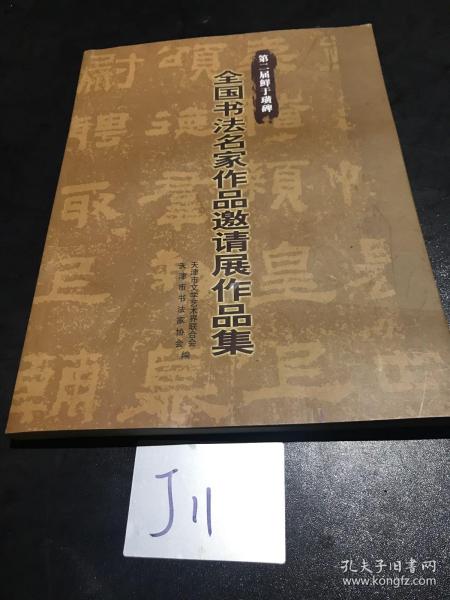 第二届鲜于璜碑
全国书法名家作品邀请展作品集
天津市文学艺术界联合会
天津市书法家协会 编
J11
孔夫子旧书网
www.kongfz.com